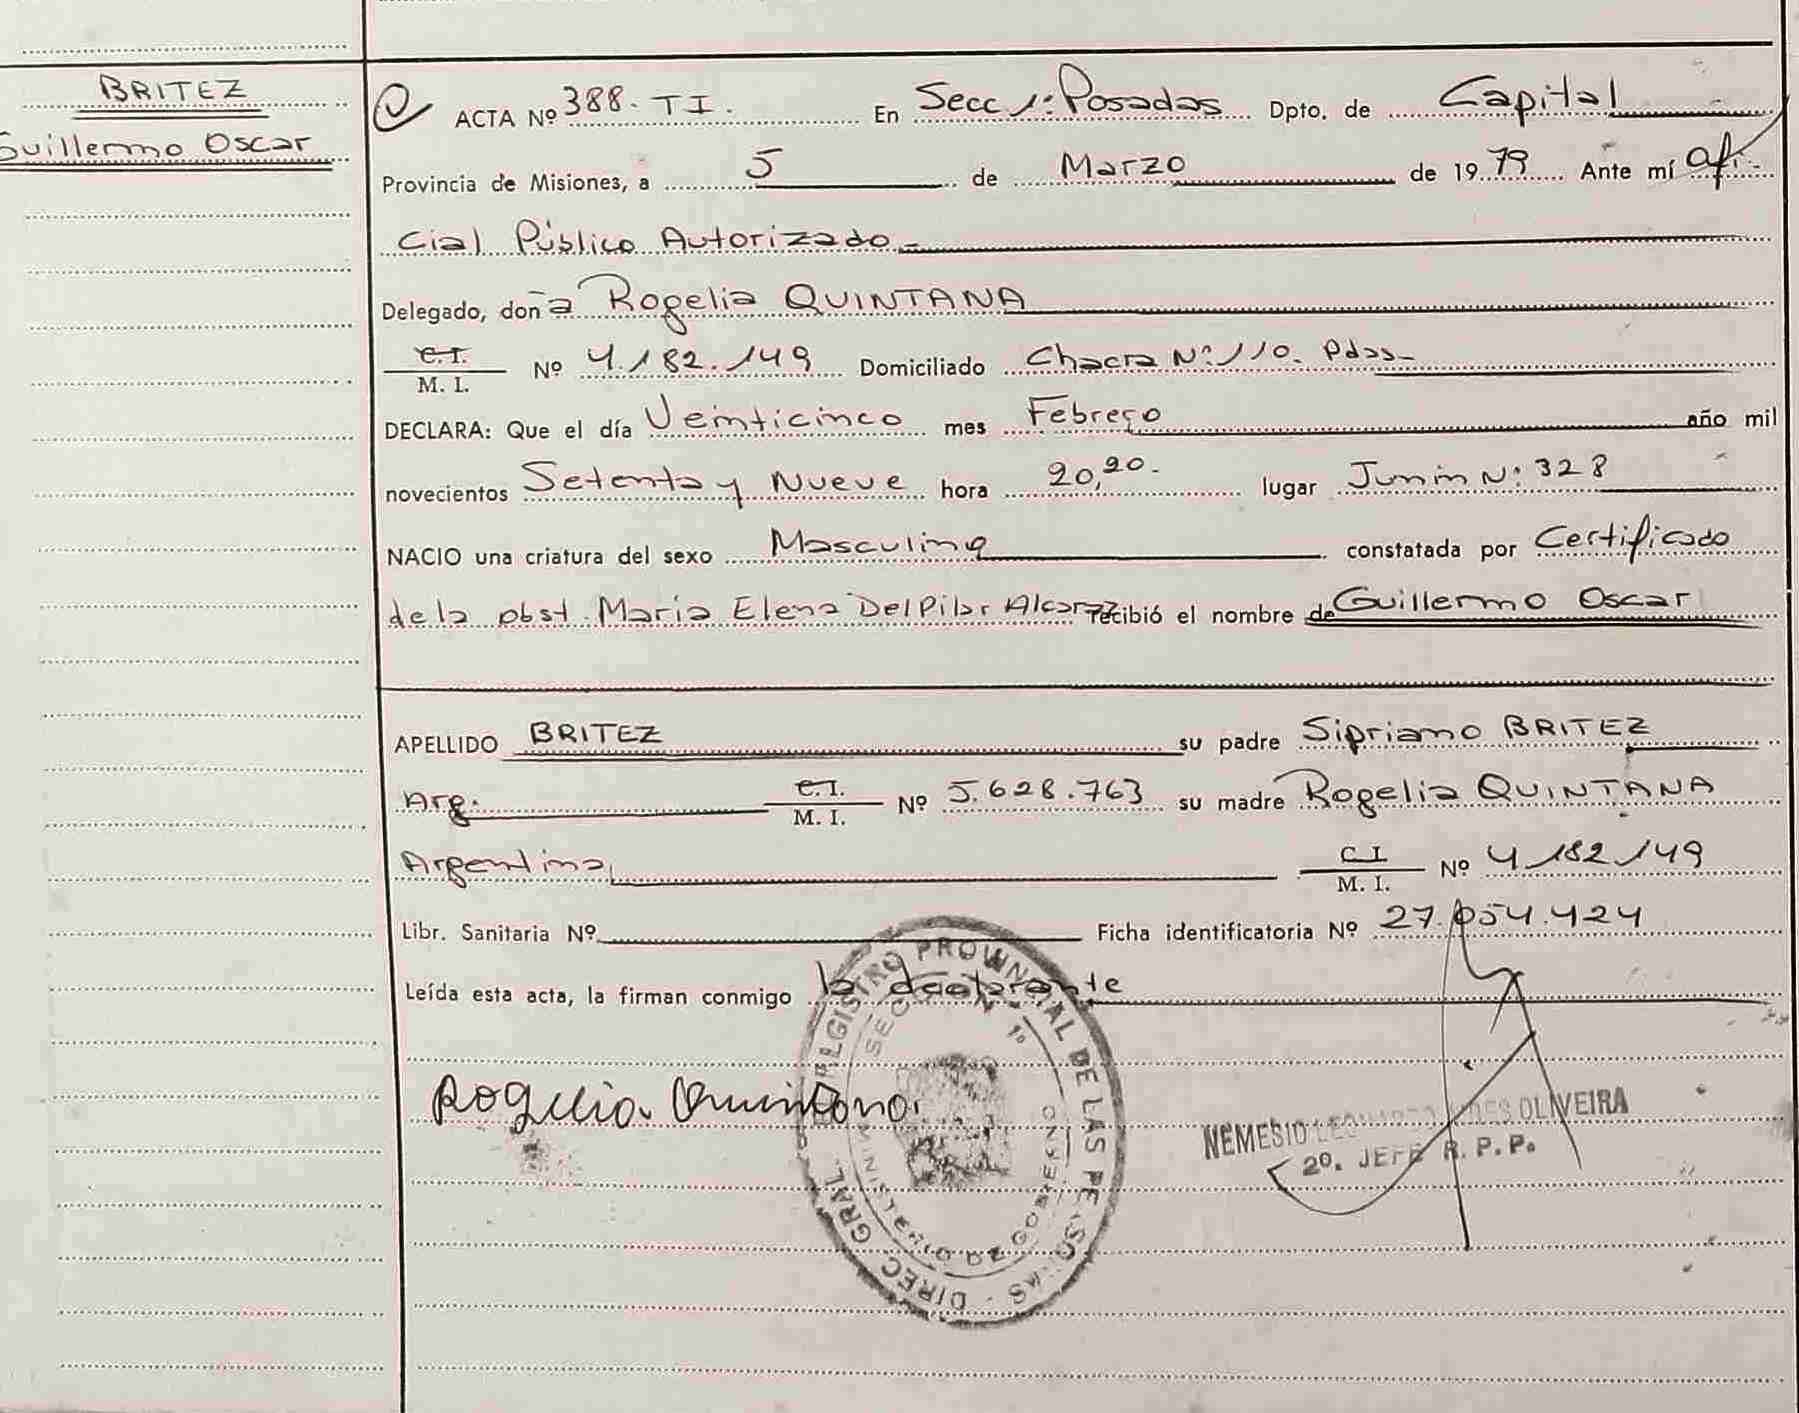 BRITEZ
Guillermo Oscar
ACTA Nº 388. TI. En Secc 1: Posadas Dpto. de Capital
Provincia de Misiones, a 5 de Marzo de 1979 Ante mí ofi-
cial Público Autorizado.-
Delegado, doña Rogelia QUINTANA
C.I.
M. I. Nº 4.182.149 Domiciliado Chacra Nº: 110. Pdas-
DECLARA: Que el día Veinticinco mes Febrero año mil
novecientos Setenta y Nueve hora 20,20. lugar Junin Nº: 328
NACIO una criatura del sexo Masculino constatada por Certificado
de la obst. Maria Elena Del Pilar Alcaraz recibió el nombre de Guillermo Oscar
APELLIDO BRITEZ su padre Sipriano BRITEZ
Arg. C.I.
M. I. Nº 5.628.763 su madre Rogelia QUINTANA
Argentina C I
M. I. Nº 4 182 149
Libr. Sanitaria Nº Ficha identificatoria Nº 27.054.424
Leída esta acta, la firman conmigo la declarante
Rogelia Quintana
DIREC. GRAL. REGISTRO PROVINCIAL DE LAS PERSONAS
MINISTERIO DE GOBIERNO
SECC 1º
NEMESIO OLIVEIRA
2º. JEFE R. P. P.